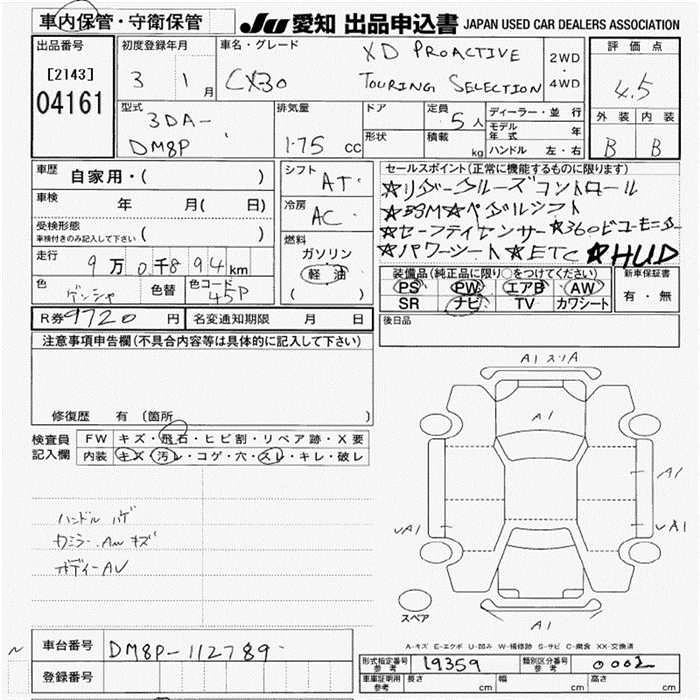 車内保管・守衛保管
JU愛知 出品申込書 JAPAN USED CAR DEALERS ASSOCIATION
出品番号
[2143]
04161
初度登録年月
3 1月
車名・グレード
CX-30
XD PROACTIVE
TOURING SELECTION
2WD
・
4WD
評価点
4.5
外装 内装
B B
型式
3DA-
DM8P
排気量
1.75 cc
ドア
形状
定員
5人
積載
kg
ディーラー・並行
モデル年式 年
ハンドル 左・右
車歴
自家用・( )
車検
年 月( 日)
受検形態
車検付きのみ記入して下さい ( )
走行
9万0千894km
色
ゲンシャ
色替
色コード
45P
シフト
AT
冷房
AC
燃料
ガソリン
軽油
( )
セールスポイント(正常に機能するものに限ります)
☆リダークルーズコントロール
☆BSM☆パドルシフト
☆セーフティセンサー☆360ビューモニター
☆パワーシート☆ETC ★HUD
装備品(純正品に限り○をつけてください)
PS PW エアB AW
SR ナビ TV カワシート
新車保証書
有・無
R券 9720 円
名変通知期限 月 日
後日品
注意事項申告欄(不具合内容等は具体的に記入して下さい)
修復歴 有 (箇所 )
検査員
記入欄
FW キズ・飛石・ヒビ割・リペア跡・X要
内装 キズ・汚レ・コゲ・穴・スレ・キレ・破レ
ハンドル ハゲ
カミラー・AWキズ
ボディーAU
A1 スリA
A1
A1
UA1
UA1
A1
スペア
A-キズ E-エクボ U-凹み W-補修跡 S-サビ C-腐食 XX-交換済
車台番号
DM8P-112789
登録番号
形式指定番号
参考
19359
類別区分番号
参考
0002
車庫証明用
参考
長さ cm 幅 cm 高さ cm